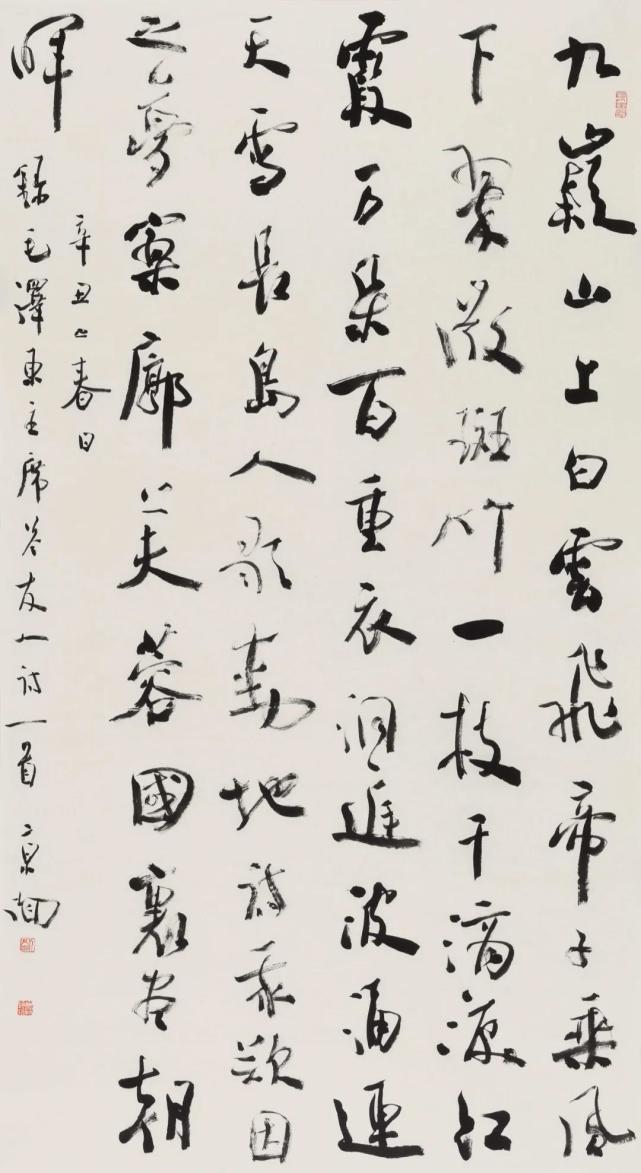 九嶷山上白雲飛帝子乘風
下翠微斑竹一枝千滴淚紅
霞万朵百重衣洞庭波涌連
天雪長島人歌動地詩我欲因
之夢寥廓芙蓉國裏尽朝
暉
辛丑之春日
錄毛澤東主席答友人詩一首